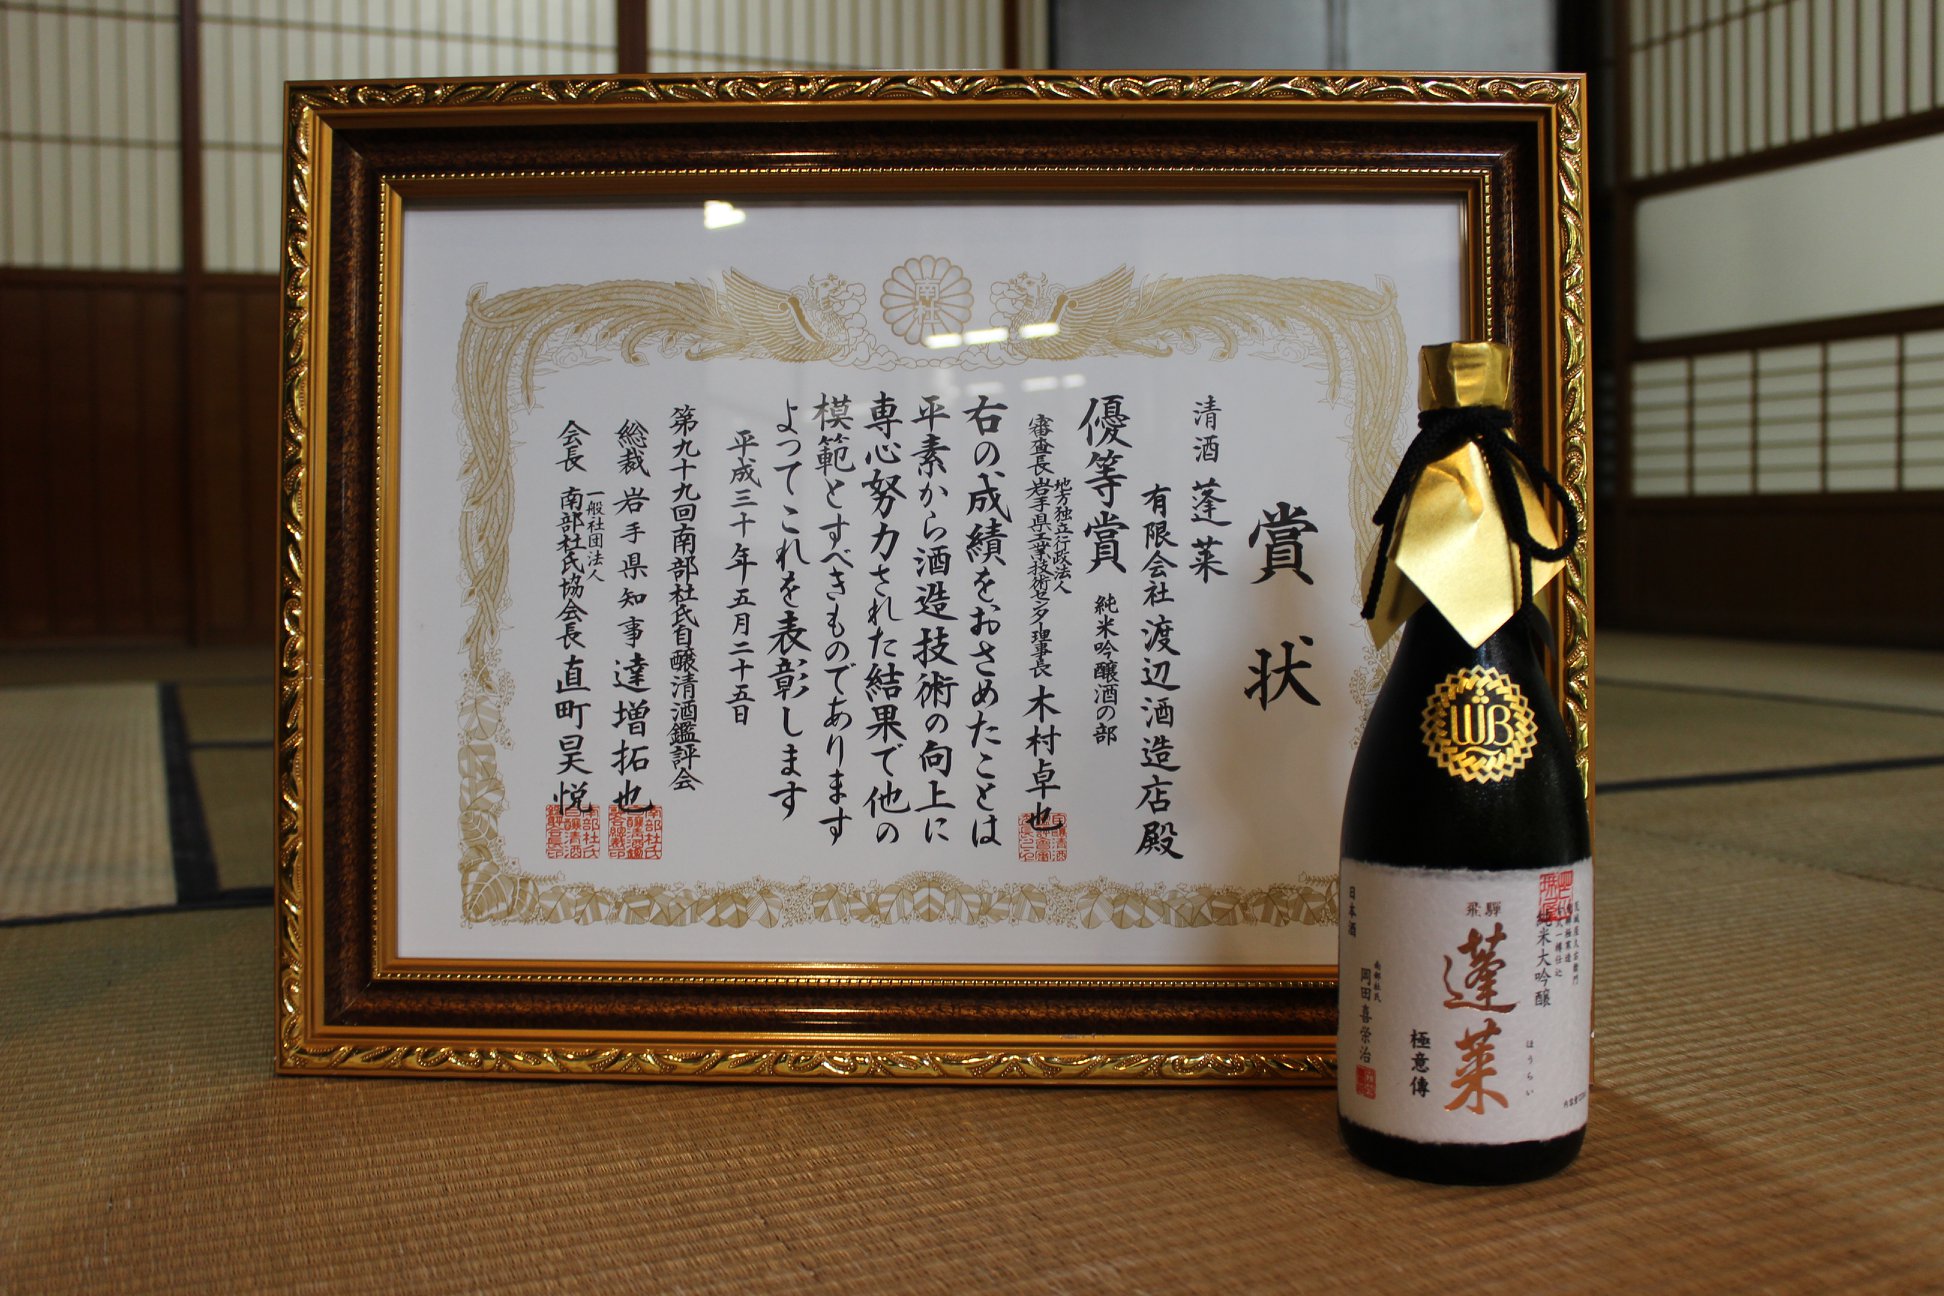 賞状
清酒 蓬莱
有限会社 渡辺酒造店殿
優等賞 純米吟醸酒の部
地方独立行政法人
審査長 岩手県工業技術センター理事長 木村卓也
右の成績をおさめたことは
平素から酒造技術の向上に
専心努力された結果で他の
模範とすべきものであります
よってこれを表彰します
平成三十年五月二十五日
第九十九回南部杜氏自醸清酒鑑評会
総裁 岩手県知事 達増拓也
一般社団法人
会長 南部杜氏協会長 直町昊悦
南社
WB
純米大吟醸
飛騨
蓬莱
ほうらい
極意傳
南部杜氏
岡田喜栄治
日本酒